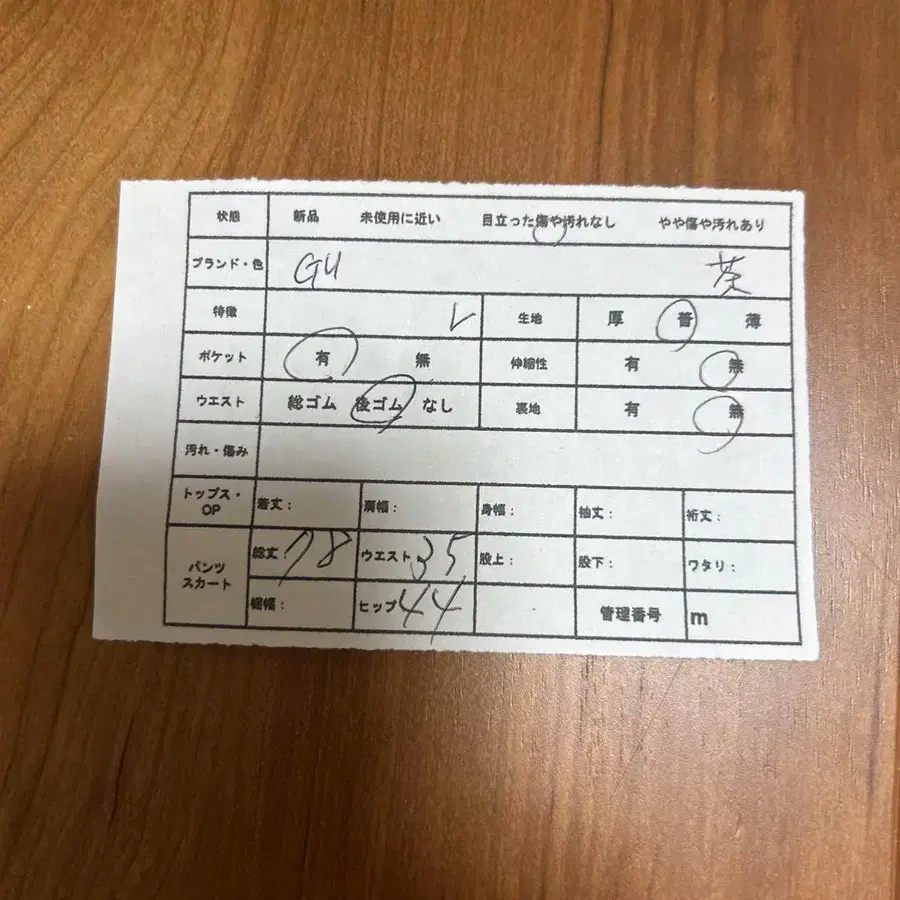 状態 新品 未使用に近い 目立った傷や汚れなし やや傷や汚れあり
ブランド・色 GU 茶
特徴 レ 生地 厚 普 薄
ポケット 有 無 伸縮性 有 無
ウエスト 総ゴム 後ゴム なし 裏地 有 無
汚れ・傷み
トップス・OP 着丈: 肩幅: 身幅: 袖丈: 裄丈:
パンツ スカート 総丈:78 ウエスト35 股上: 股下: ワタリ:
裾幅: ヒップ44 管理番号 m